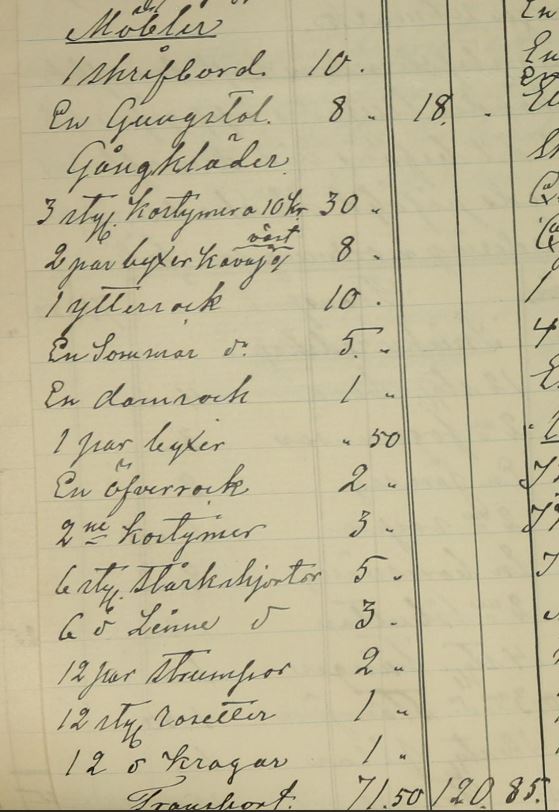 Möbler
1 skrifbord. 10.
En Gungstol. 8 " 18. "
Gångkläder
3 styc. kostymer a 10 kr 30 "
väst
2 par byxer kavaj 8 "
1 ytterrock 10.
En Sommar do 5. "
En damrock 1 "
1 par byxer " 50
En öfverrock 2 "
2ne kostymer 3 "
6 styc. Stärkskjortor 5 "
6 do Linne do 3 "
12 par strumpor 2 "
12 styc rosetter 1 "
12 do kragar 1 "
Transport. 71.50 120.85